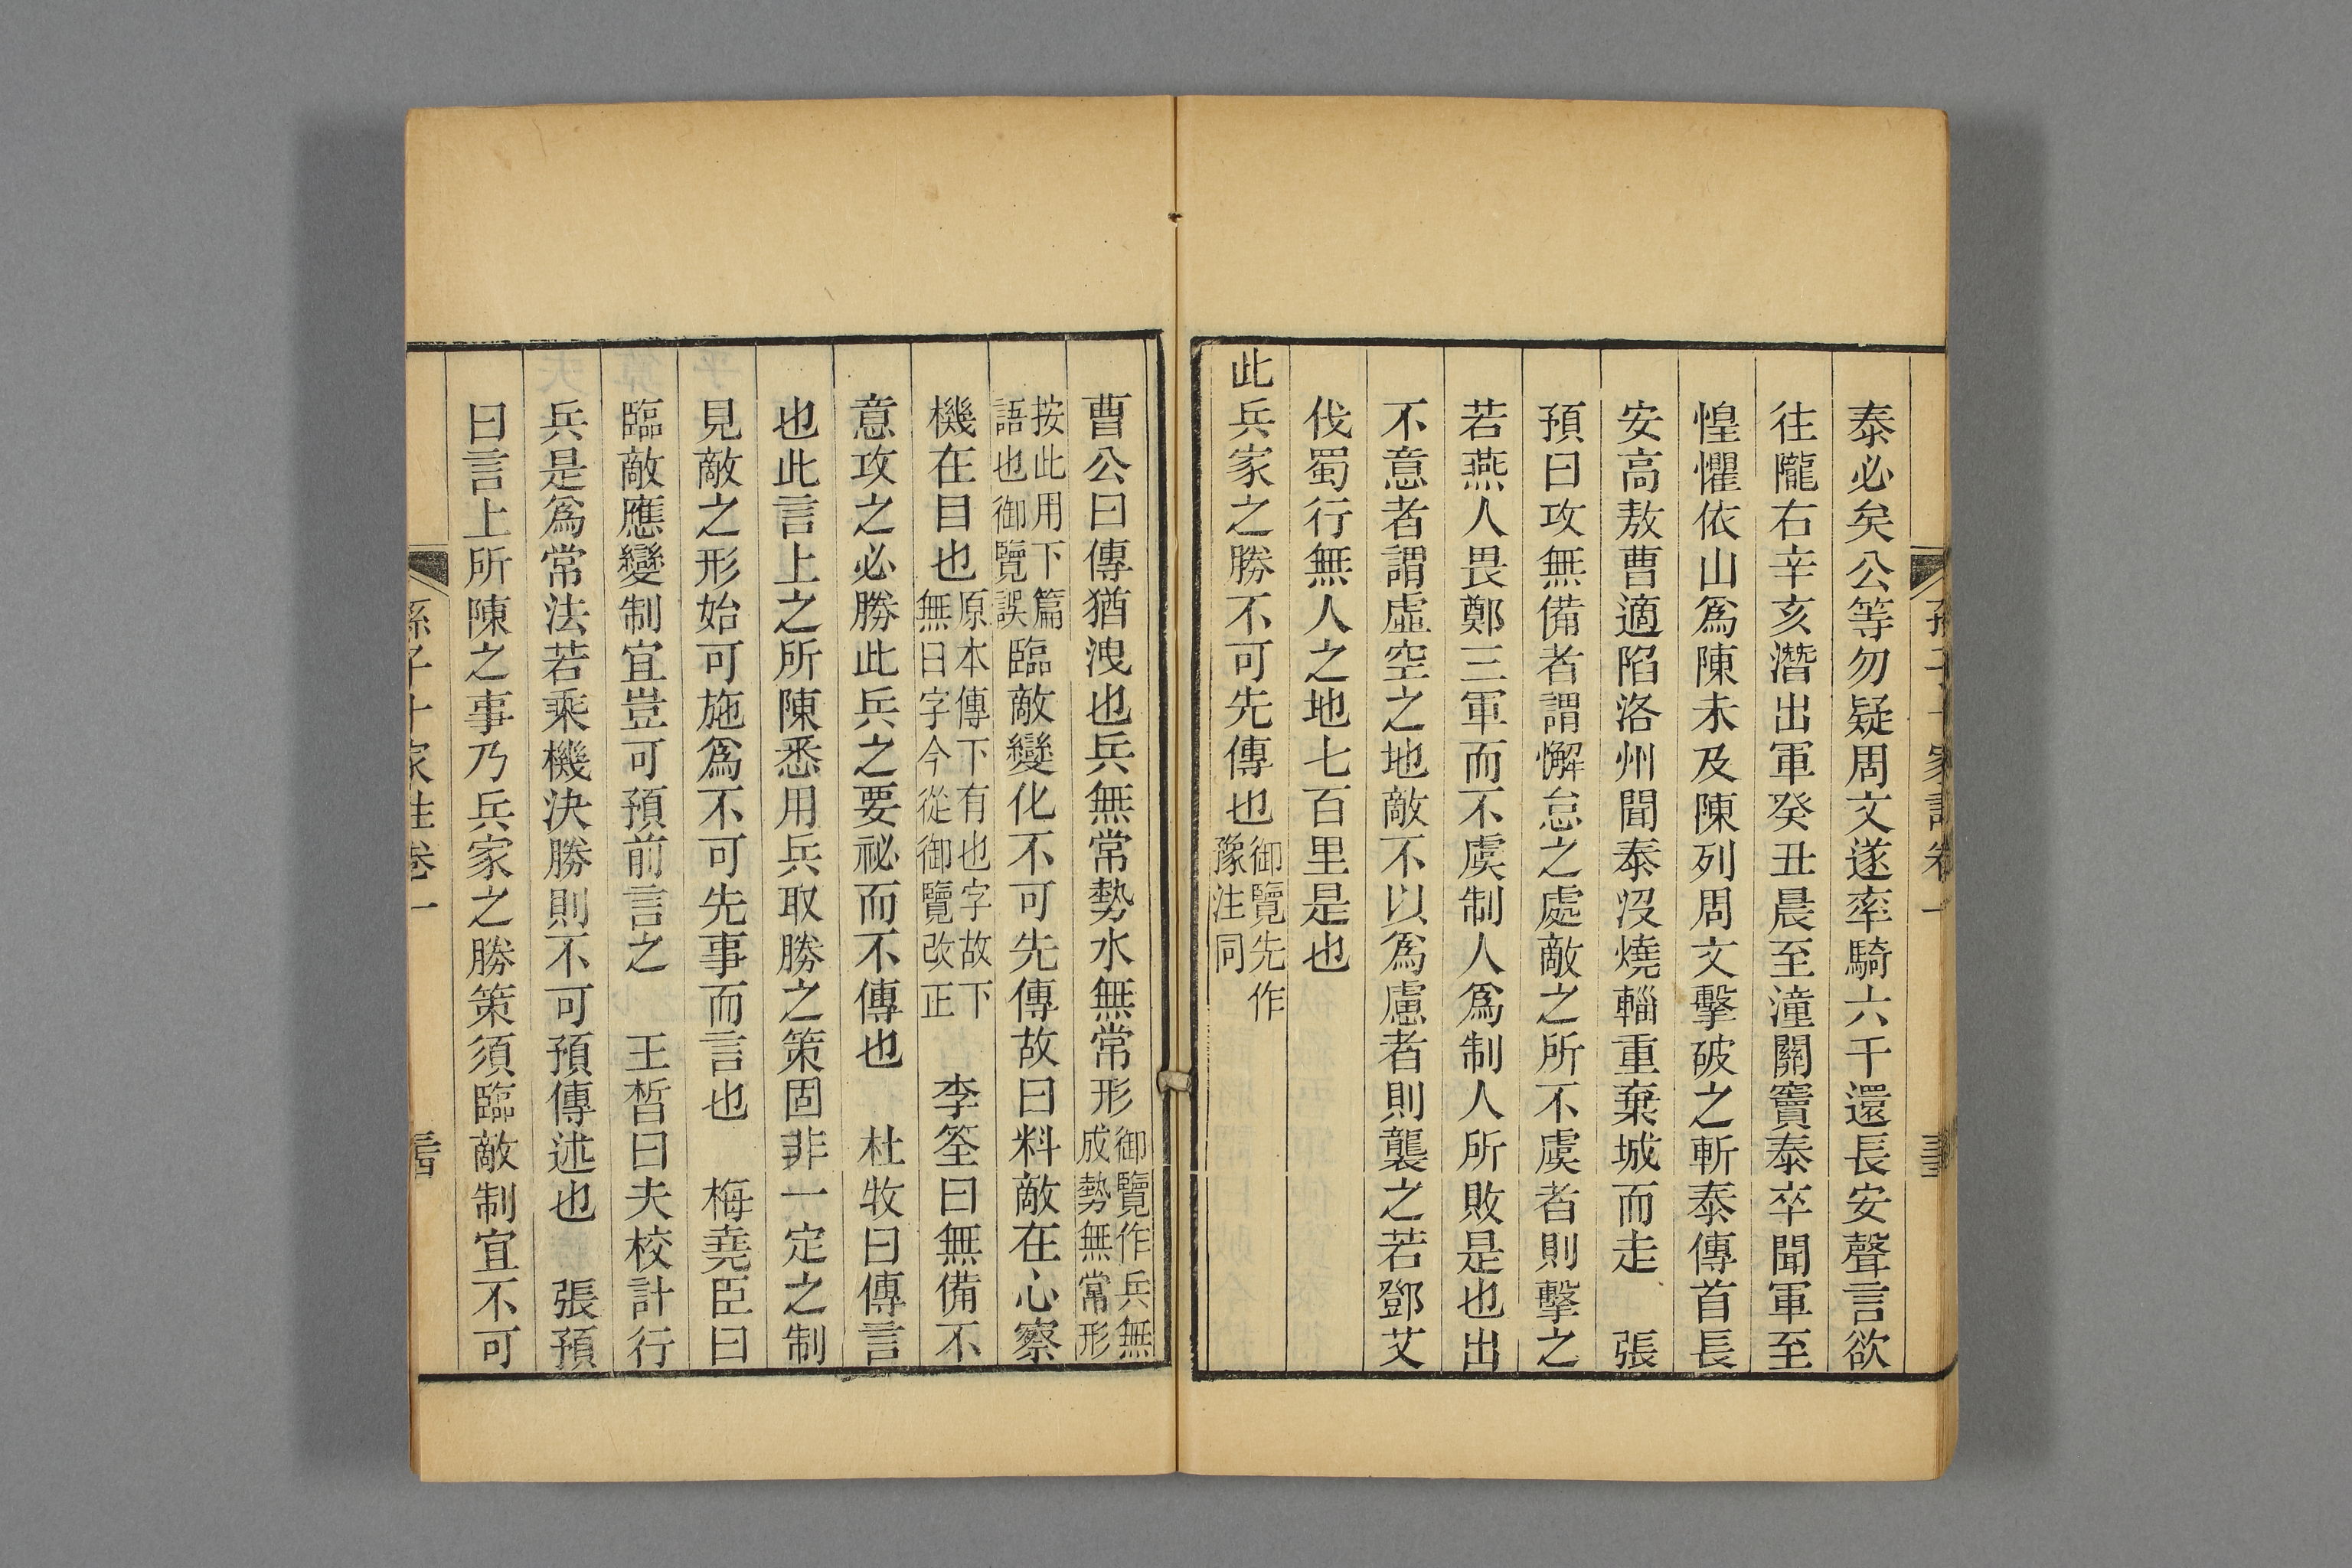 泰必矣公等勿疑周文遂率騎六千還長安聲言欲
往隴右辛亥潛出軍癸丑晨至潼關竇泰卒聞軍至
惶懼依山爲陳未及陳列周文擊破之斬泰傳首長
安高敖曹適陷洛州聞泰沒燒輜重棄城而走　張
預曰攻無備者謂懈怠之處敵之所不虞者則擊之
若燕人畏鄭三軍而不虞制人爲制人所敗是也出
不意者謂虛空之地敵不以爲慮者則襲之若鄧艾
伐蜀行無人之地七百里是也
此兵家之勝不可先傳也御覽先作豫注同
曹公曰傳猶洩也兵無常勢水無常形御覽作兵無成勢無常形
按此用下篇語也御覽誤臨敵變化不可先傳故曰料敵在心察
機在目也原本傳下有也字故下無曰字今從御覽改正　李筌曰無備不
意攻之必勝此兵之要祕而不傳也　杜牧曰傳言
也此言上之所陳悉用兵取勝之策固非一定之制
見敵之形始可施爲不可先事而言也　梅堯臣曰
臨敵應變制宜豈可預前言之　王晳曰夫校計行
兵是爲常法若乘機決勝則不可預傳述也　張預
曰言上所陳之事乃兵家之勝策須臨敵制宜不可
孫子十家注卷一